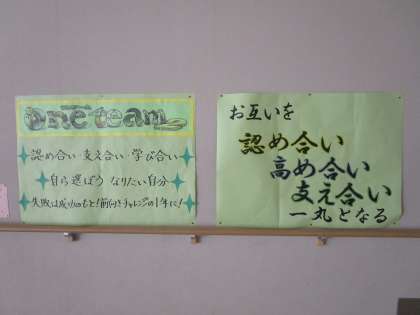 One team
認め合い 支え合い 学び合い
自ら選ぼう なりたい自分
失敗は成功のもと!前向きチャレンジの1年に!
お互いを
認め合い
高め合い
支え合い
一丸となる